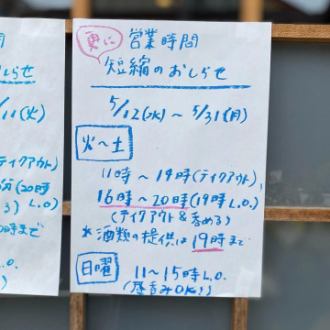 更に 営業時間
短縮のおしらせ
5/12(水)～5/31(月)
火～土
11時～19時(テイクアウト)
16時～20時(19時L.O.)
(テイクアウト&呑める)
*酒類の提供は19時まで
日曜 11～15時L.O.
(昼呑みOK!)
間
おしらせ
/11(火)
テイクアウト)
(20時
L.O.)
時まで
L.O.